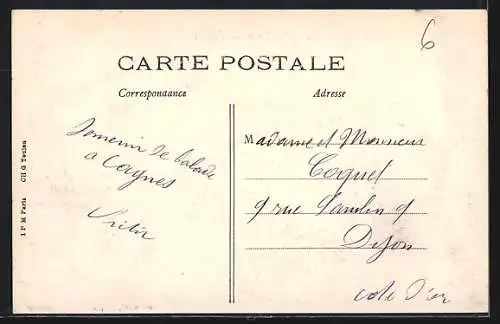 6
CARTE POSTALE
Correspondance
Adresse
Souvenir de balade
a Cagnes
Madame et Monsieur
Coquet
9 rue 9
Dijon
cote d'or
I P M Paris CH G Toulon